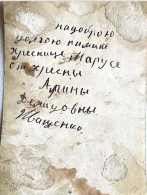 на доброю
долгою памить
хреснице Марусе
от хресны
Арины
Демидовны
Иващенко.